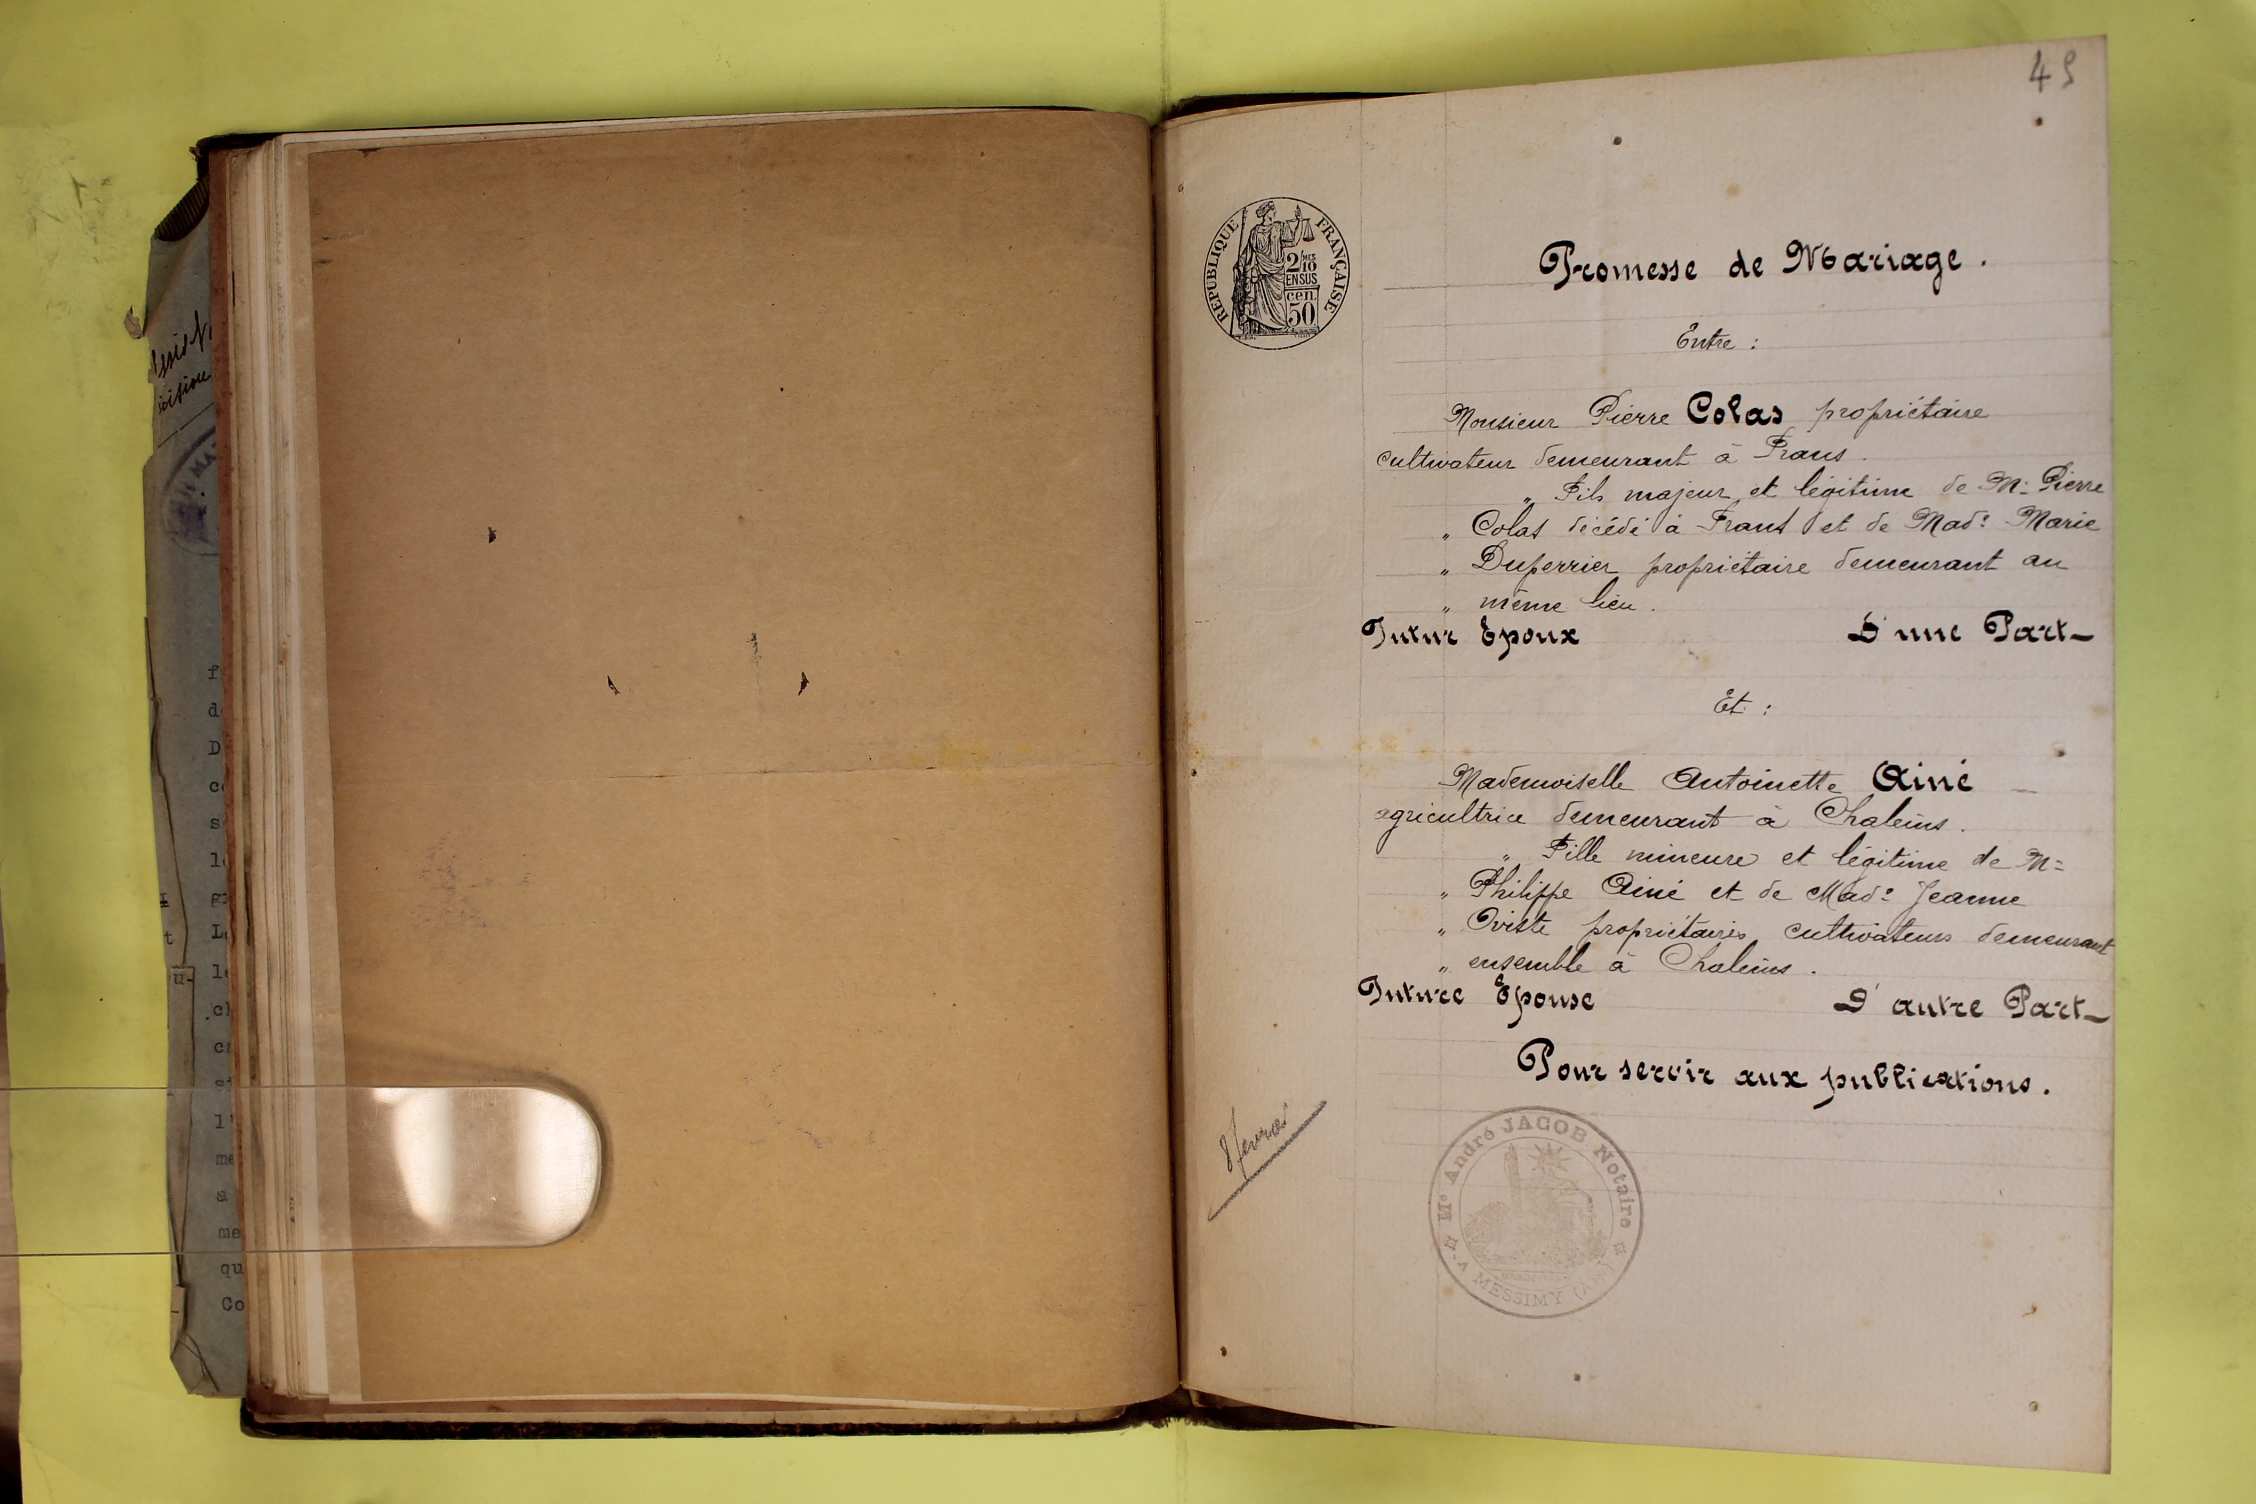 49
RÉPUBLIQUE FRANÇAISE
2/10 MES
EN SUS
cen.
50
Promesse de Mariage.
Entre :
Monsieur Pierre Colas propriétaire
cultivateur demeurant à Frans.
„ Fils majeur et légitime de Mr Pierre
„ Colas décédé à Frans et de Made Marie
„ Duperrier propriétaire demeurant au
„ même lieu.
Futur Epoux D'une Part_
Et :
Mademoiselle Antoinette Ainé
agricultrice demeurant à Chaleins.
„ Fille mineure et légitime de Mr
„ Philippe Ainé et de Made Jeanne
„ Oviste propriétaires cultivateurs demeurant
„ ensemble à Chaleins.
Future Epouse D'autre Part_
Pour servir aux publications.
8 fevrier
Me André JACOB Notaire
MESSIMY (Ain)
f
d
D
c
s
l
L
l
me
a
me
qu
Co